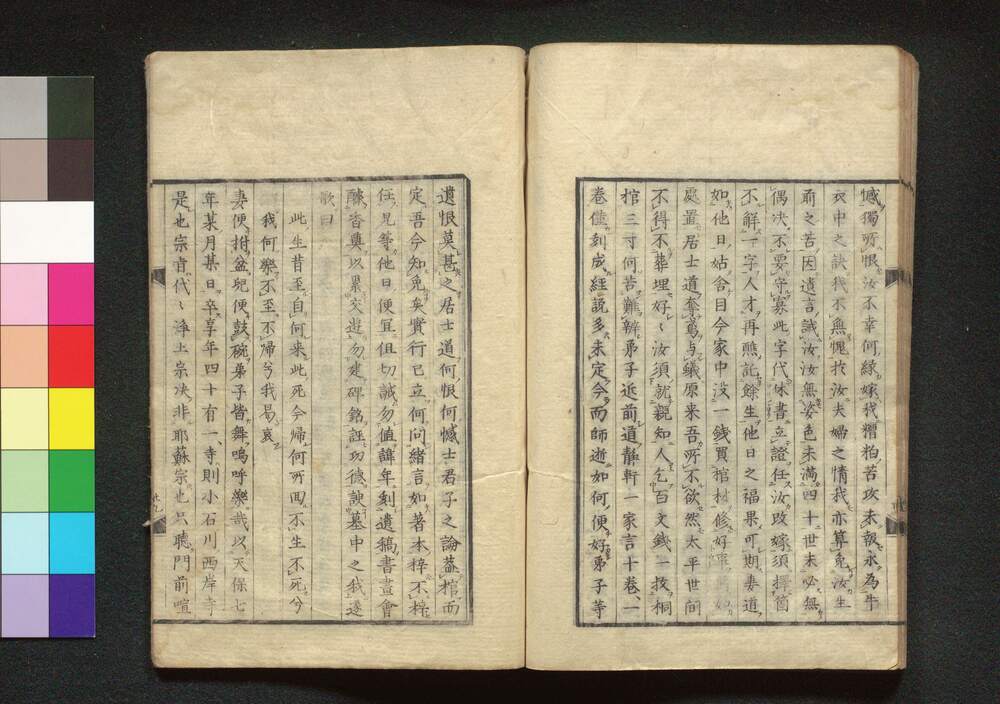 憾獨所恨汝不幸何緣嫁我糟粕苦攻未報永為牛
衣中之訣我不無愧於汝夫婦之情我亦算免汝生
前之苦因遺言誡汝汝無姿色未滿四十世未必無
偶决不要守寡此字代休書立證任汝改嫁須擇箇
不解一字人才再醮託餘生他日之福果可期妻道
如他日姑舍目今家中沒一錢買棺材修好事
處置居士道奪鳶与蟻原来吾所不欲然太平世間
不得不葬埋好〻汝須就親知人乞百文錢一枚桐
棺三寸何苦難辨弟子近前道靜軒一家言十卷一
卷僅刻成經説多未定今而師逝如何便好弟子等
遺恨莫甚之居士道何恨何憾士君子之論蓋棺而
定吾今知免矣實行已立何問緒言如著本梓不梓
任兄等他日便宜但切誡勿值諱年刻遺稿書畫會
醵香奠以累交遊勿建碑銘誣功德諛墓中之我遂
歌曰
此生昔至自何来此死今歸何所回不生不死兮
我何樂不至不歸兮我曷哀
妻便拊盆兒便鼓碗弟子皆舞嗚呼樂哉以天保七
年某月某日卒享年四十有一寺則小石川西岸寺
是也宗旨代〻淨土宗决非耶蘇宗也只聽門前喧